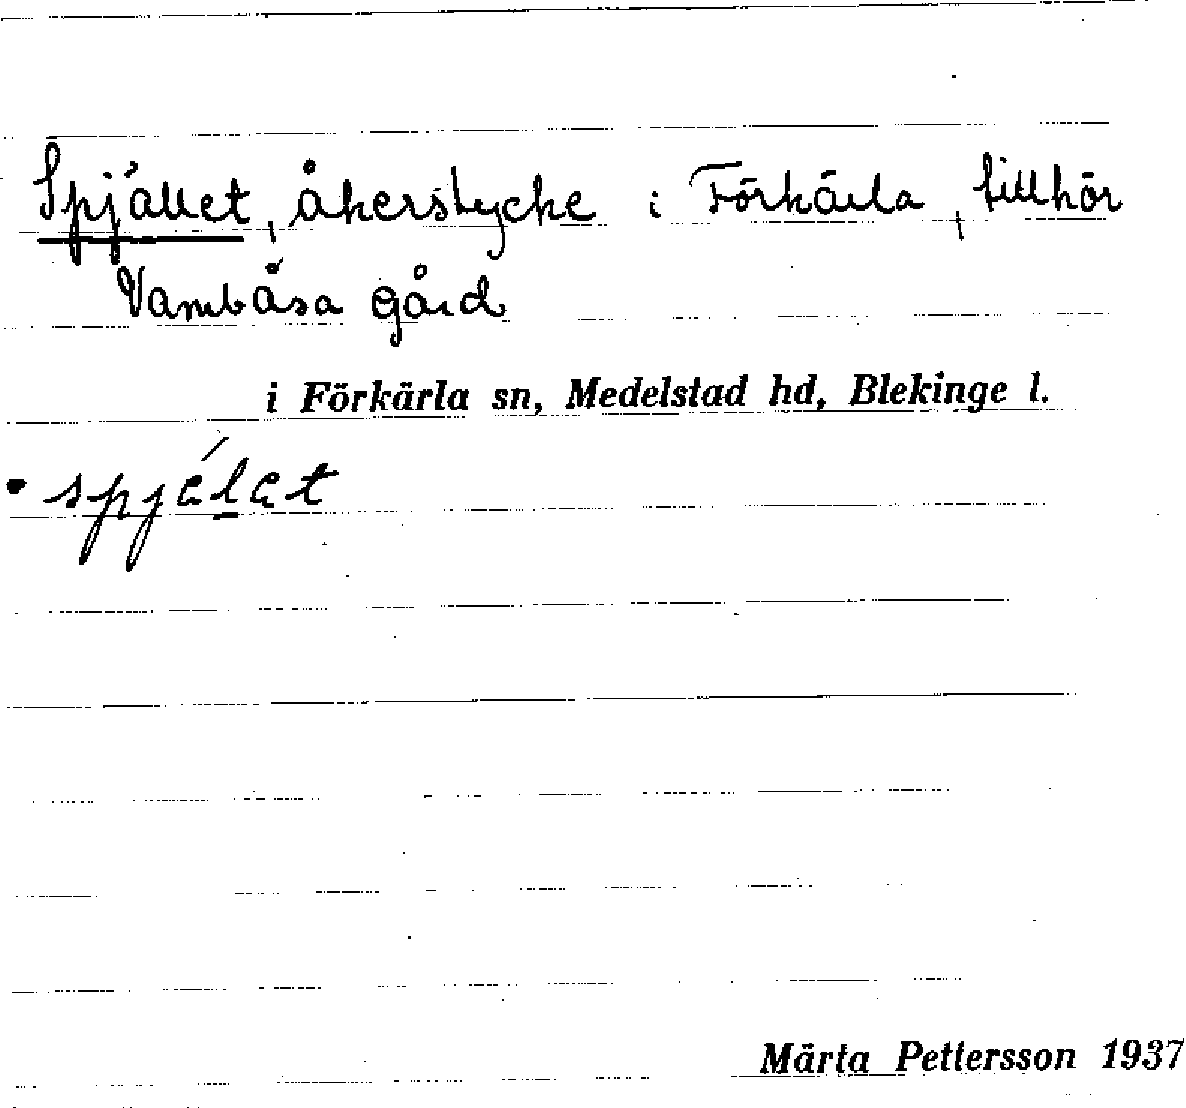 Spjället, åkerstycke i Förkärla, tillhör
Vambåsa gård
i Förkärla sn, Medelstad hd, Blekinge l.
• spjélet
Märta Pettersson 1937